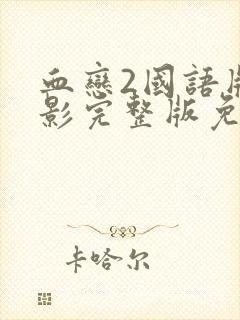 血戀2國語版
影完整版免
卡哈尔